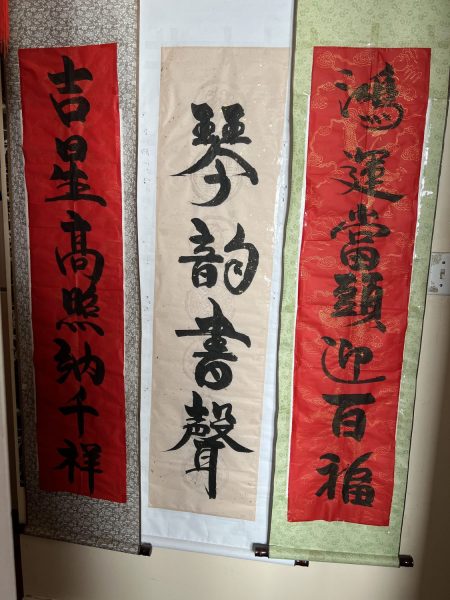 鴻運當頭迎百福
琴韵書聲
吉星高照納千祥